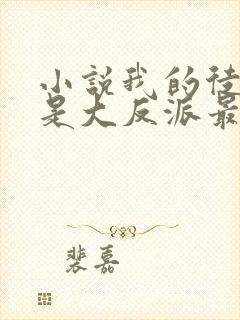 小說我的徒
是大反派最
裴嘉